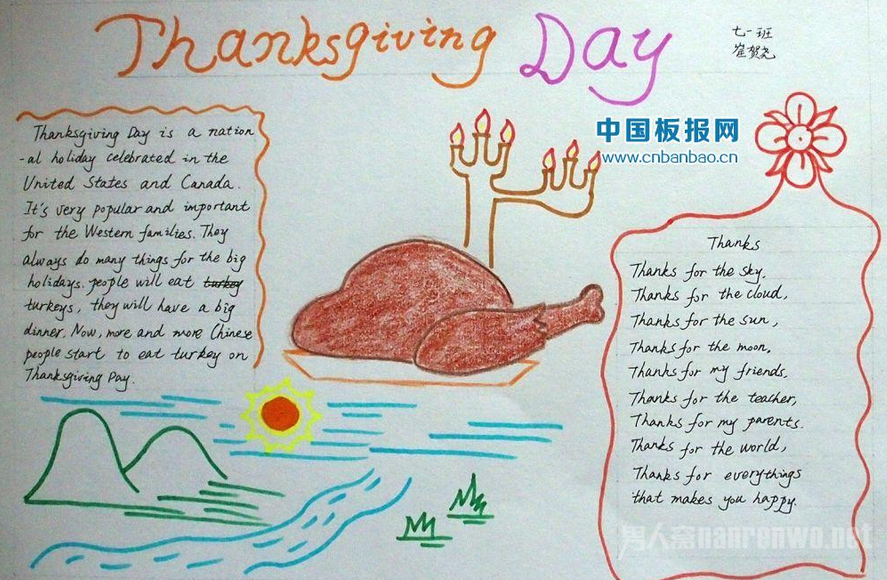 Thanksgiving Day
七一班
崔贺尧
Thanksgiving Day is a nation
-al holiday celebrated in the
United States and Canada.
It's very popular and important
for the Western families. They
always do many things for the big
holidays. people will eat turkey
turkeys, they will have a big
dinner. Now, more and more Chinese
people start to eat turkey on
Thanksgiving Day.
中国板报网
www.cnbanbao.cn
Thanks
Thanks for the sky,
Thanks for the cloud,
Thanks for the sun,
Thanks for the moon,
Thanks for my friends,
Thanks for the teacher,
Thanks for my parents.
Thanks for the world,
Thanks for everythings
that makes you happy.
男人窝nanrenwo.net